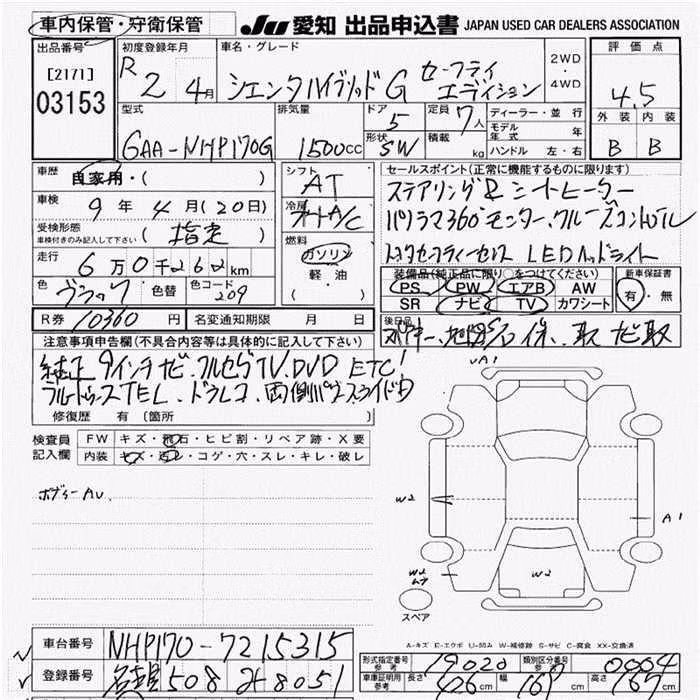 車内保管・守衛保管 JU 愛知 出品申込書 JAPAN USED CAR DEALERS ASSOCIATION
出品番号 [2171] 03153
初度登録年月 R 2 4月
車名・グレード シエンタハイブリッドG セーフティエディション
2WD・4WD
評価点 4.5
外装 内装
B B
型式 6AA-NHP170G
排気量 1500cc
ドア 5
形状 SW
定員 7人
積載 kg
ディーラー・並行
モデル年式 年
ハンドル 左・右
車歴 自家用・( )
車検 9年 4月(20日)
受検形態 (指定)
車検付きのみ記入して下さい
走行 6万0千262km
色 ブラック 色替 色コード 209
シフト AT
冷房 オートA/C
燃料 ガソリン 軽・油
セールスポイント(正常に機能するものに限ります)
ステアリング&シートヒーター
パノラマ360°モニター、クルーズコントロール
トヨタセーフティーセンス LEDヘッドライト
装備品(純正品に限り○をつけてください)
PS PW エアB AW
SR ナビ TV カワシート
新車保証書 有・無
R券 10360円 名変通知期限 月 日
後日品
注意事項申告欄(不具合内容等は具体的に記入して下さい)
純正9インチナビ、フルセグTV、DVD ETC
ブルートゥースTEL、ドラレコ、両側パワースライドD
修復歴 有(箇所 )
検査員記入欄
FW キズ・飛石・ヒビ割・リペア跡・X要
内装 キズ・汚レ・コゲ・穴・スレ・キレ・破レ
ボディーAU
A1
W2
A1
W2
W2
スペア
A-キズ E-エクボ U-凹み W-補修跡 S-サビ C-腐食 XX-交換済
車台番号 NHP170-7215315
登録番号 508 8051
形式指定番号 参考 19020 類別区分番号 参考 0004
車庫証明用 参考 長さ 426cm 幅 169cm 高さ 167cm